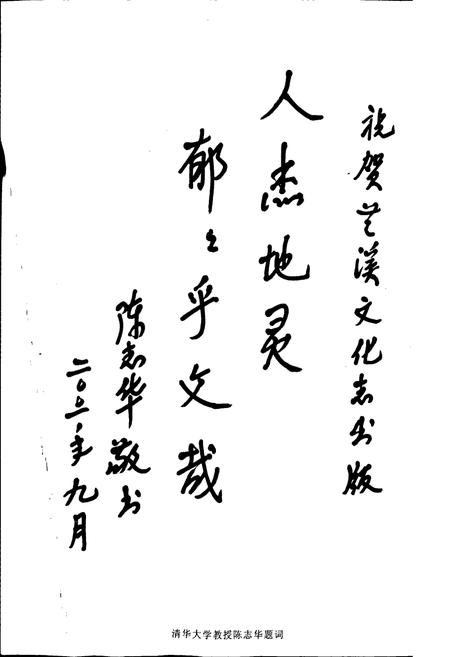 祝贺兰溪文化志出版
人杰地灵
郁々乎文哉
陈志华敬书
二〇〇一年九月
清华大学教授陈志华题词